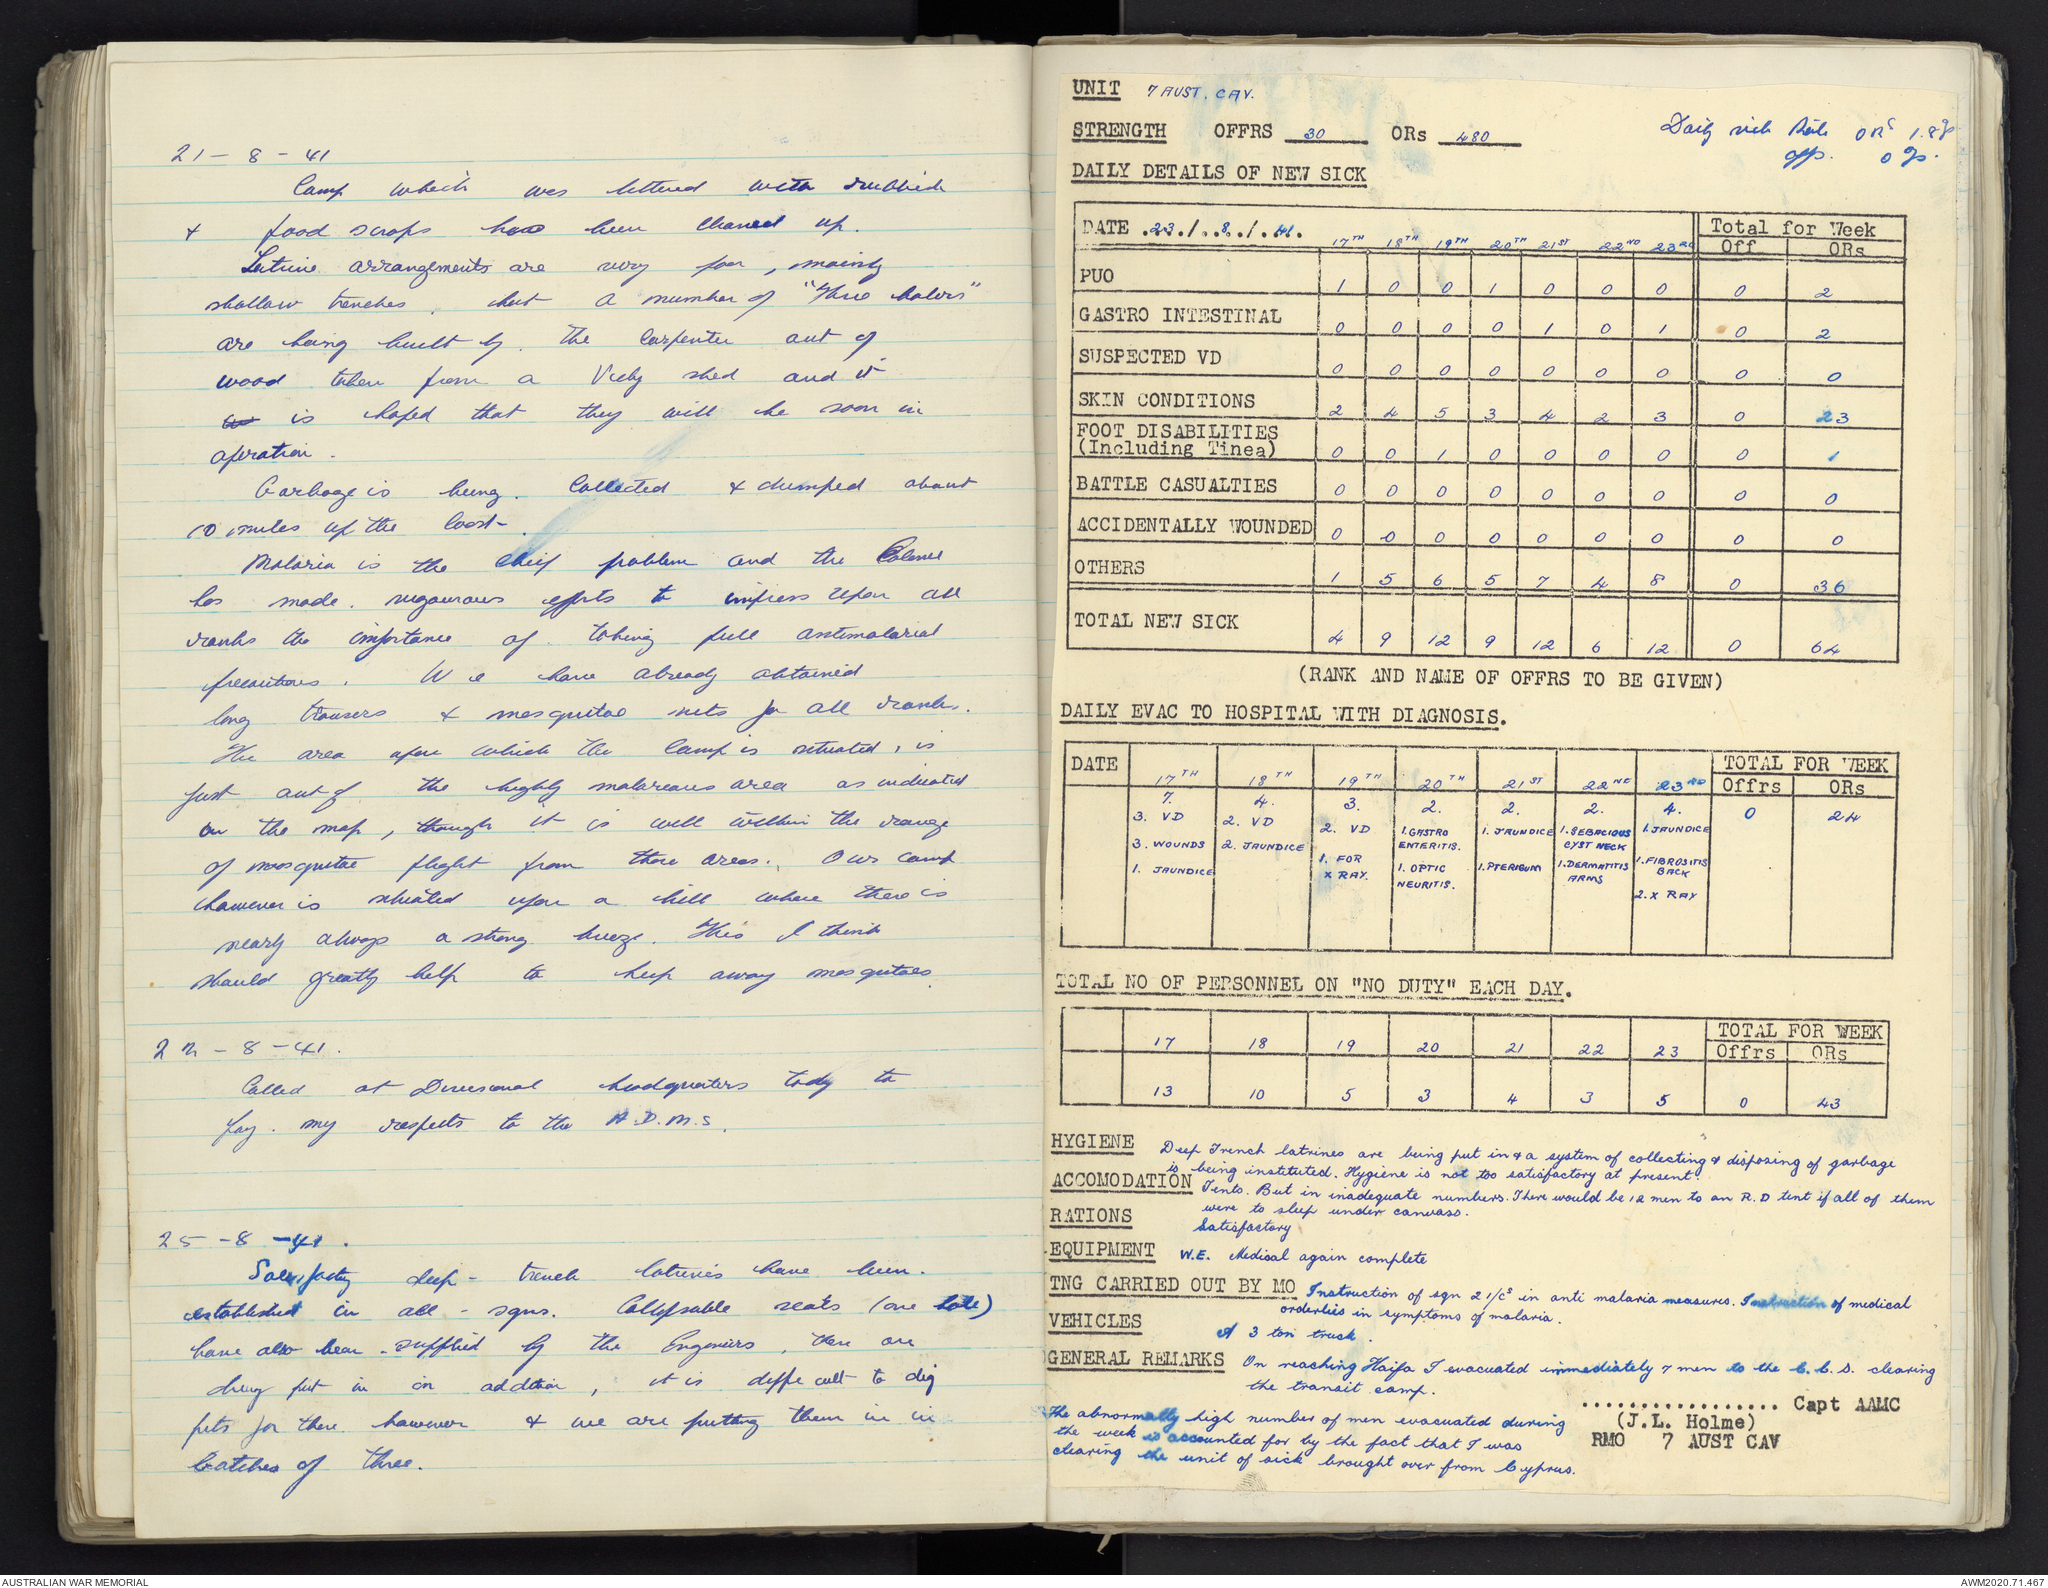 21 - 8 - 41
Camp which was littered with rubbish
& food scraps has been cleaned up.
Latrine arrangements are very poor, mainly
shallow trenches, but a number of "three holers"
are being built by the carpenter out of
wood taken from a Vichy shed and it
is hoped that they will be soon in
operation.
Garbage is being collected & dumped about
10 miles up the coast.
Malaria is the cheif problem and the Colonel
has made vigourous efforts to impress upon all
ranks the importance of taking full antimalarial
precautions. We have already obtained
long trousers & mosquitoe nets for all ranks.
The area upon which the camp is situated, is
just out of the highly malareous area as indicated
on the map, though it is well within the range
of mosquitoe flight from those areas. Our camp
however is situated upon a hill where there is
nearly always a strong breeze. This I think
should greatly help to keep away mosquitoes.
22 - 8 - 41.
Called at Divisional headquarters tody to
pay my respects to the A.D.M.S.
25 - 8 - 41.
Satisfactory deep - trench latrines have been
established in all - sqns. Collapsable seats (one hole)
have also been supplied by the Engeniers, then are
being put in in addition, it is difficult to dig
pits for these however & we are putting them in in
batches of three.
UNIT 7 AUST. CAV.
STRENGTH OFFRS 30 ORs 480
Daily sick Rate ORs 1.8%
offs. 0%.
DAILY DETAILS OF NEW SICK
DATE .23./..8./.41. 17TH 18TH 19TH 20TH 21ST 22ND 23RD Total for Week
Off ORs
PUO 1 0 0 1 0 0 0 0 2
GASTRO INTESTINAL 0 0 0 0 1 0 1 0 2
SUSPECTED VD 0 0 0 0 0 0 0 0 0
SKIN CONDITIONS 2 4 5 3 4 2 3 0 23
FOOT DISABILITIES
(Including Tinea) 0 0 1 0 0 0 0 0 1
BATTLE CASUALTIES 0 0 0 0 0 0 0 0 0
ACCIDENTALLY WOUNDED 0 0 0 0 0 0 0 0 0
OTHERS 1 5 6 5 7 4 8 0 36
TOTAL NEW SICK 4 9 12 9 12 6 12 0 64
(RANK AND NAME OF OFFRS TO BE GIVEN)
DAILY EVAC TO HOSPITAL WITH DIAGNOSIS.
DATE 17TH 18TH 19TH 20TH 21ST 22ND 23RD TOTAL FOR WEEK
Offrs ORs
7. 4. 3. 2. 2. 2. 4. 0 24
3. VD 2. VD 2. VD 1. GASTRO ENTERITIS. 1. JAUNDICE 1. SEBACIOUS CYST NECK 1. JAUNDICE
3. WOUNDS 2. JAUNDICE 1. FOR X RAY. 1. OPTIC NEURITIS. 1. PTERIGUM 1. DERMATITIS ARMS 1. FIBROSITIS BACK
1. JAUNDICE 2. X RAY
TOTAL NO OF PERSONNEL ON "NO DUTY" EACH DAY.
17 18 19 20 21 22 23 TOTAL FOR WEEK
Offrs ORs
13 10 5 3 4 3 5 0 43
HYGIENE Deep Trench latrines are being put in & a system of collecting & disposing of garbage
is being instituted. Hygiene is not too satisfactory at present.
ACCOMODATION Tents. But in inadequate numbers. There would be 12 men to an R.D tent if all of them
were to sleep under canvass.
RATIONS Satisfactory
EQUIPMENT W.E. Medical again complete
TNG CARRIED OUT BY MO Instruction of sqn 2 i/cs in anti malaria measures. Instruction of medical
orderlies in symptoms of malaria.
VEHICLES A 3 ton truck.
GENERAL REMARKS On reaching Haifa I evacuated immediately 7 men to the C.C.S. clearing
the transit camp.
.................. Capt AAMC
(J.L. Holme)
RMO 7 AUST CAV
The abnormally high number of men evacuated during
the week is accounted for by the fact that I was
clearing the unit of sick brought over from Cyprus.
AUSTRALIAN WAR MEMORIAL
AWM2020.71.467